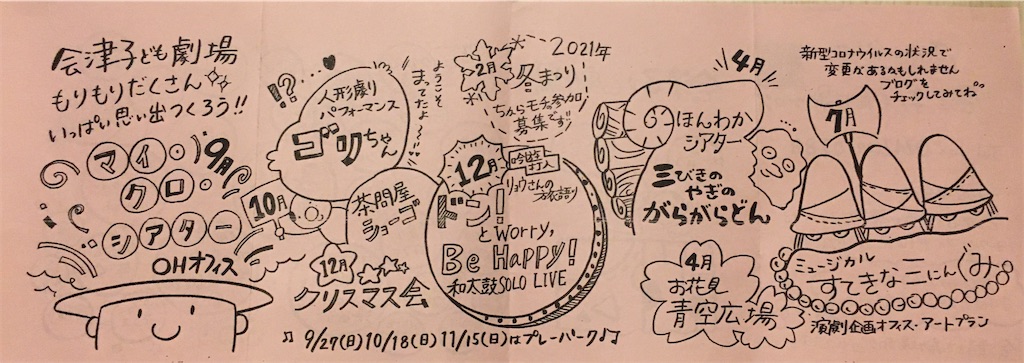 会津子ども劇場
もりもりだくさん
いっぱい思い出つくろう!!
9月
マイ・
クロ・
シアター
OHオフィス
!?
ようこそ
まってたよ
人形ぶり
パフォーマンス
ゴリちゃん
10月
茶問屋
ショーゴ
12月
クリスマス会
2021年
2月
冬まつり
ちからモチの参加
募集です!
12月
吟遊
打人
リョウさんの
旅語り
ドン!
とWorry,
Be Happy!
和太鼓SOLO LIVE
4月
ほんわか
シアター
三びきの
やぎの
がらがらどん
4月
お花見
青空広場
新型コロナウイルスの状況で
変更があるかもしれません
ブログを
チェックしてみてね
7月
ミュージカル
すてきな三にんぐみ
演劇企画オフィス・アートプラン
♫ 9/27(日)10/18(日)11/15(日)はプレーパーク♪♫